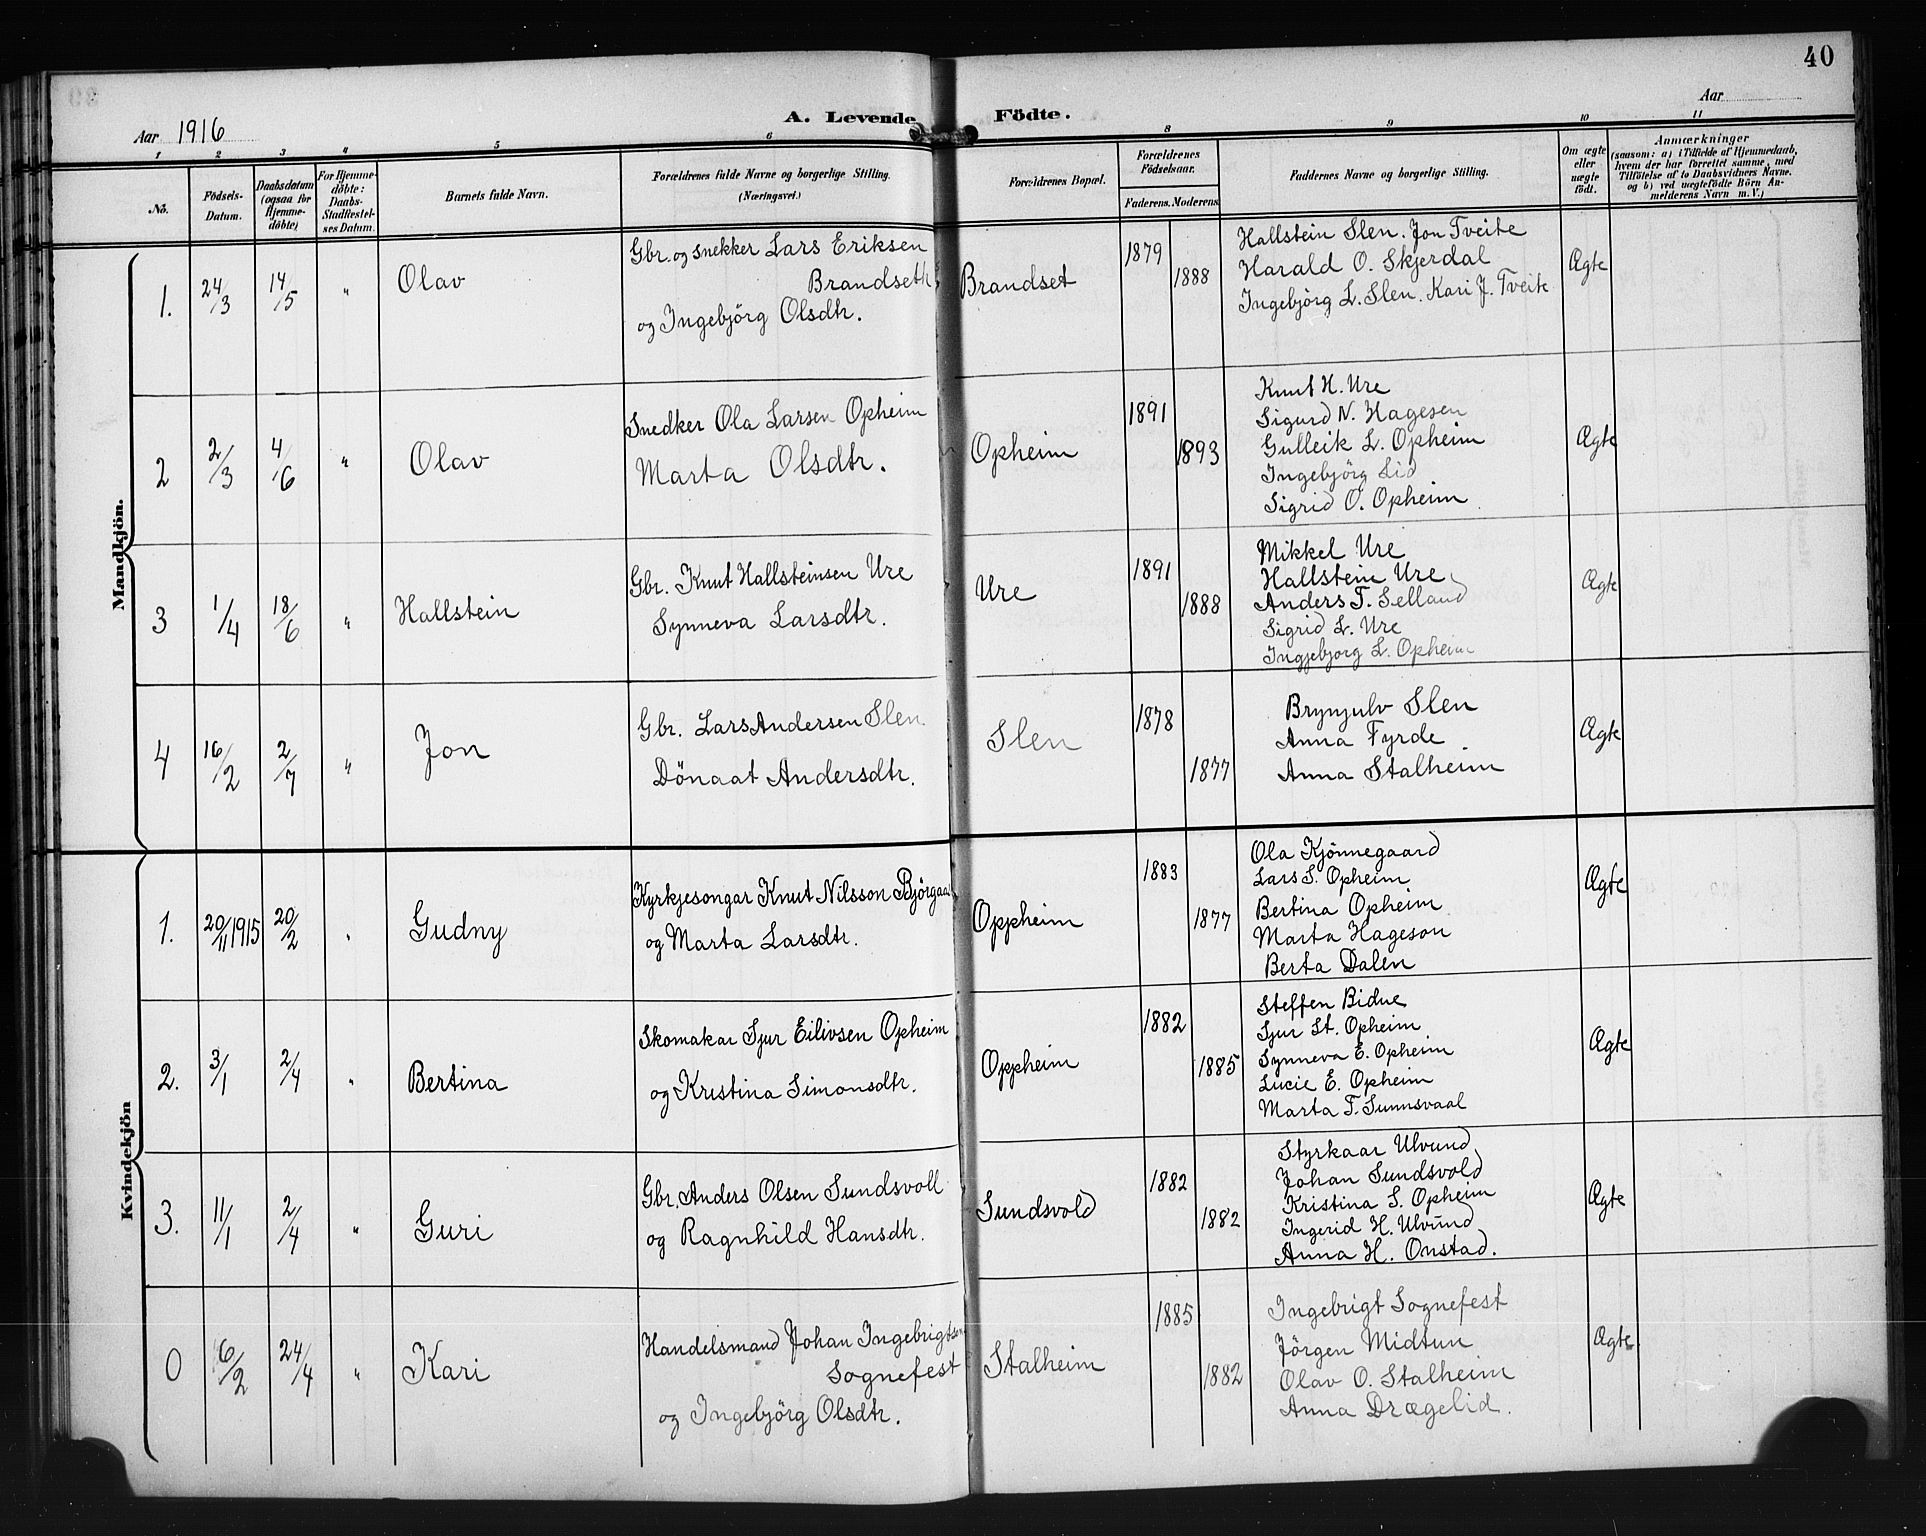 40
Aar 1916
A. Levende Födte.
Aar
1 2 3 4 5 6 8 9 10 11
No.
Födsels-Datum.
Daabsdatum (ogsaa for Hjemme-döbte)
For Hjemme-döbte: Daabs-Stadfæstel-ses Datum.
Barnets fulde Navn.
Forældrenes fulde Navne og borgerlige Stilling.
(Næringsvei.)
Forældrenes Bopæl.
Forældrenes Födselsaar.
Faderens. Moderens.
Faddernes Navne og borgerlige Stilling.
Om ægte eller uægte födt.
Anmærkninger
(saasom: a) i Tilfælde af Hjemmedaab,
hvem der har forrettet samme, med
Tilföielse af to Daabsvidners Navne.
og b) ved uægtefödte Börn An-
melderens Navn m. V.)
Mandkjön.
1. 24/3 14/5 " Olav
Gbr. og Snekker Lars Eriksen
Brandseth
og Ingebjörg Olsdtr.
Brandset 1879 1888
Hallstein Slen. Jon Tveite
Harald O. Skjerdal
Ingebjörg L. Slen. Kari J. Tveite
Ægte
2 2/3 4/6 " Olav
Snedker Ola Larsen Opheim
Marta Olsdtr.
Opheim 1891 1893
Knut H. Ure
Sigurd N. Hagesen
Gulleik L. Opheim
Ingebjörg Lid
Sigrid O. Opheim
Ægte
3 1/4 18/6 " Hallstein
Gbr. Knut Hallsteinsen Ure
Synneva Larsdtr.
Ure 1891 1888
Mikkel Ure
Hallstein Ure
Anders T. Selland
Sigrid L. Ure
Ingjebjorg L. Opheim
Ægte
4 16/2 2/7 " Jon
Gbr. Lars Andersen Slen.
Dönaat Andersdtr.
Slen 1878 1877
Brynjulv Slen
Anna Fyrde
Anna Stalheim
Ægte
Kvindekjön
1. 20/11 1915 20/2 " Gudny
Kyrkjesongar Knut Nilsson Björgaas
og Marta Larsdtr.
Oppheim 1883 1877
Ola Kjönnegaard
Lars S. Opheim
Bertina Opheim
Marta Hageson
Berta Dalen
Ægte
2. 3/1 2/4 " Bertina
Skomakar Sjur Eilivsen Opheim
og Kristina Simonsdtr.
Oppheim 1882 1885
Steffen Bidne
Sjur St. Opheim
Synneva E. Opheim
Lucie E. Opheim
Marta T. Sunnsvaal
Ægte
3. 11/1 2/4 " Guri
Gbr. Anders Olsen Sundsvoll
og Ragnhild Hansdtr.
Sundsvold 1882 1882
Styrkaar Ulvund
Johan Sundsvold
Kristina S. Opheim
Ingerid H. Ulvund
Anna H. Onstad.
Ægte
0 6/2 24/4 " Kari
Handelsmand Johan Ingebrigtsen
Sognefest
og Ingebjörg Olsdtr.
Stalheim 1885 1882
Ingebrigt Sognefest
Jörgen Midtun
Olav O. Stalheim
Anna Drægelid.
Ægte